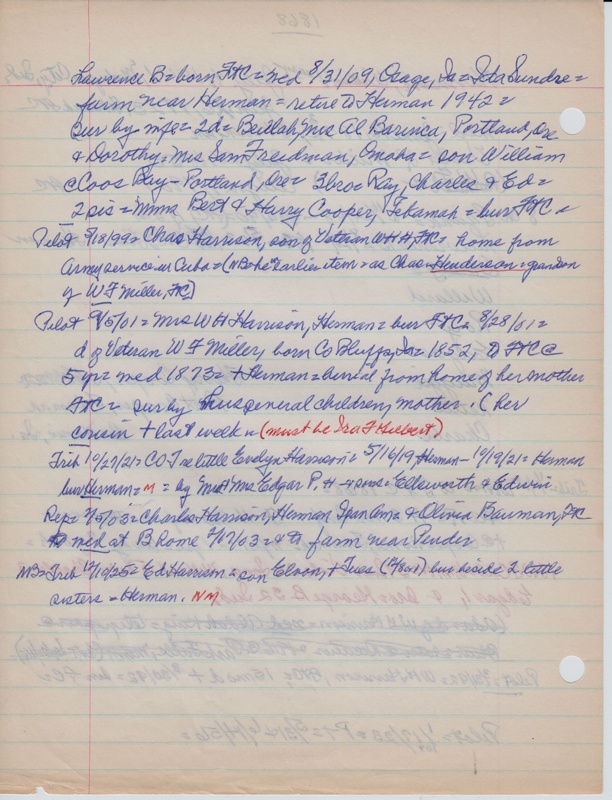 1868
Lawrence B = born FtC = wed 8/31/09, Osage, Ia = Ida Sundre =
farm near Herman = retire to Herman 1942 =
sur by wife = 2d = Beulah, Mrs Al Barinca, Portland, Ore
& Dorothy = Mrs Sam Freidman, Omaha = son William
@ Coos Bay - Portland, Ore = 3 bro = Ray, Charles & Ed =
2 sis = Mmes Bert & Harry Cooper, Tekamah = bur FtC =
Pilot 9/18/99 = Chas Harrison, son of Veteran WHH, FtC = home from
Army service in Cuba = (NB = he earlier item = as Chas Henderson = grandson
of W F Miller, FtC)
Pilot 9/5/01 = Mrs W H Harrison, Herman = bur FtC = 8/28/01 =
d of Veteran W F Miller, born Co Bluffs, Ia = 1852, to FtC @
5 yr = wed 1873 = + Herman = burial from home of her mother
FtC = sur by hus, general children, mother. (her
cousin + last week = (must be Ira F Hilbert)
Trib 10/27/21 = CO T = little Evelyn Harrison = 5/16/19, Herman - 10/19/21 = Herman
bur Herman = M = by Mr & Mrs Edgar P. H - 4 sons = Ellsworth & Edwin
Rep = 7/5/03 = Charles Harrison, Herman Span Am = & Olivia Bauman, FtC
wed at B home 2/17/03 = to farm near Pender
NB = Trib 12/10/25 = Ed Harrison = son Eldon, + Tues bur beside 2 little
sisters = Herman. NM